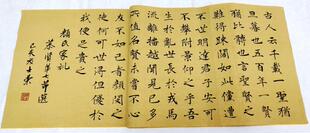 古人云千載一聖猶
旦暮也五百年一賢
猶比髆也言聖賢之
難得疎闊如此儻遭
不世明達君子安可
不攀附景仰之乎吾
生於亂世長於戎馬
流離播越聞見已多
值名賢未嘗不心
友不如己者顏閔之
徒何可世得但優於
我便足貴之
顏氏家訓
慕賢第七節選
己亥